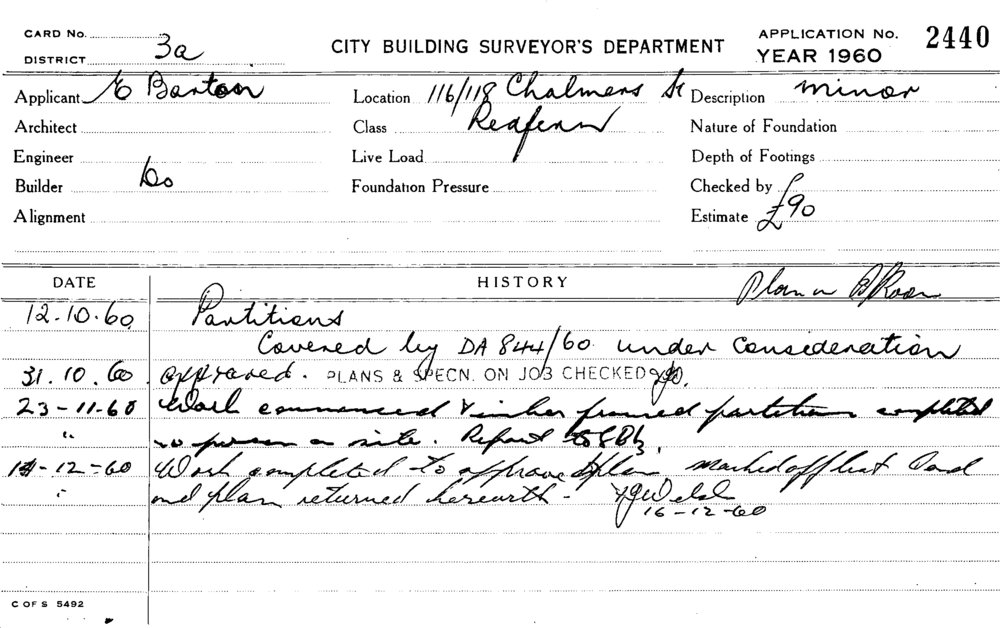 CARD No.
DISTRICT 3a
CITY BUILDING SURVEYOR'S DEPARTMENT
APPLICATION No. 2440
YEAR 1960
Applicant E Barton
Location 116/118 Chalmers St
Description minor
Architect
Class Redfern
Nature of Foundation
Engineer
Live Load
Depth of Footings
Builder Do
Foundation Pressure
Checked by
Alignment
Estimate £90
DATE
HISTORY
Plan in B Room
12.10.60 Partitions
Covered by DA 844/60 under consideration
31.10.60 approved. PLANS & SPECN. ON JOB CHECKED
23-11-60 Work commenced timber framed partitions completed
" no person on site. Report
14-12-60 Work completed to approved plan marked off Card
" and plan returned herewith - Welsh
16-12-60
C OF S 5492